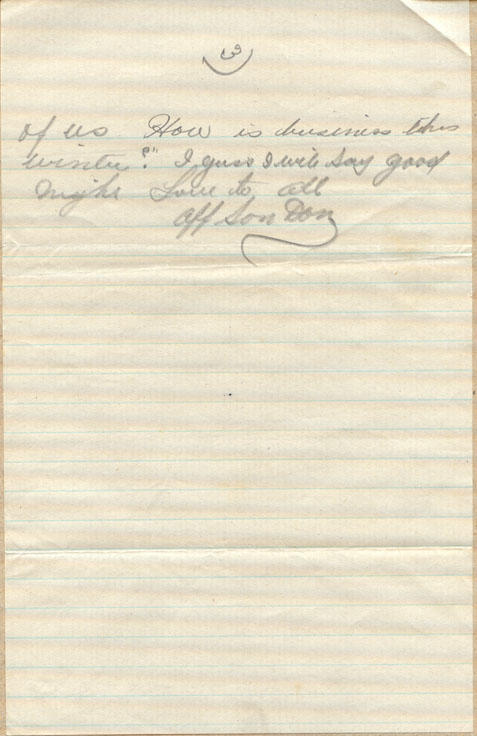 of us How is business this
winter?" I guss I will say good
night Love to all
Aff Son Don